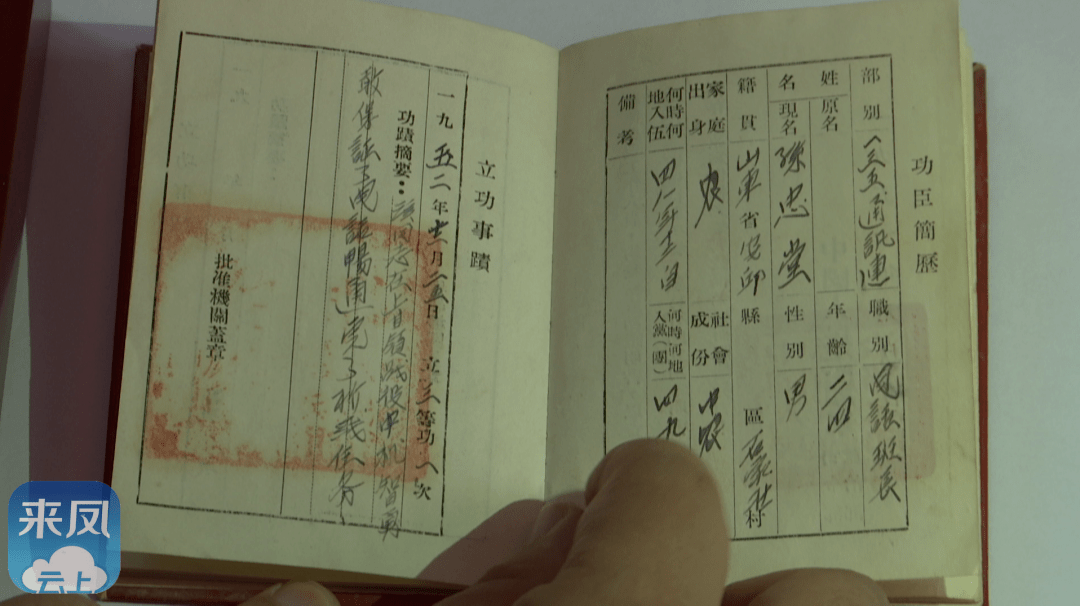 功臣簡歷
部別 一三五、通訊連 職別 電話班長
姓名 原名 年齡 二四
現名 孫忠堂 性別 男
籍貫 山東省安邱縣 區 石家莊村
家庭出身 農 社會成份 中農
何時何地入伍 四 何時何地入黨(團) 四九
備考
立功事蹟
一九五二年十二月二五日 立三等功一次
功蹟摘要:該同志在上甘領戰役中机智勇
敢保証了電話暢通
任務
批准機關蓋章
来凤
云上